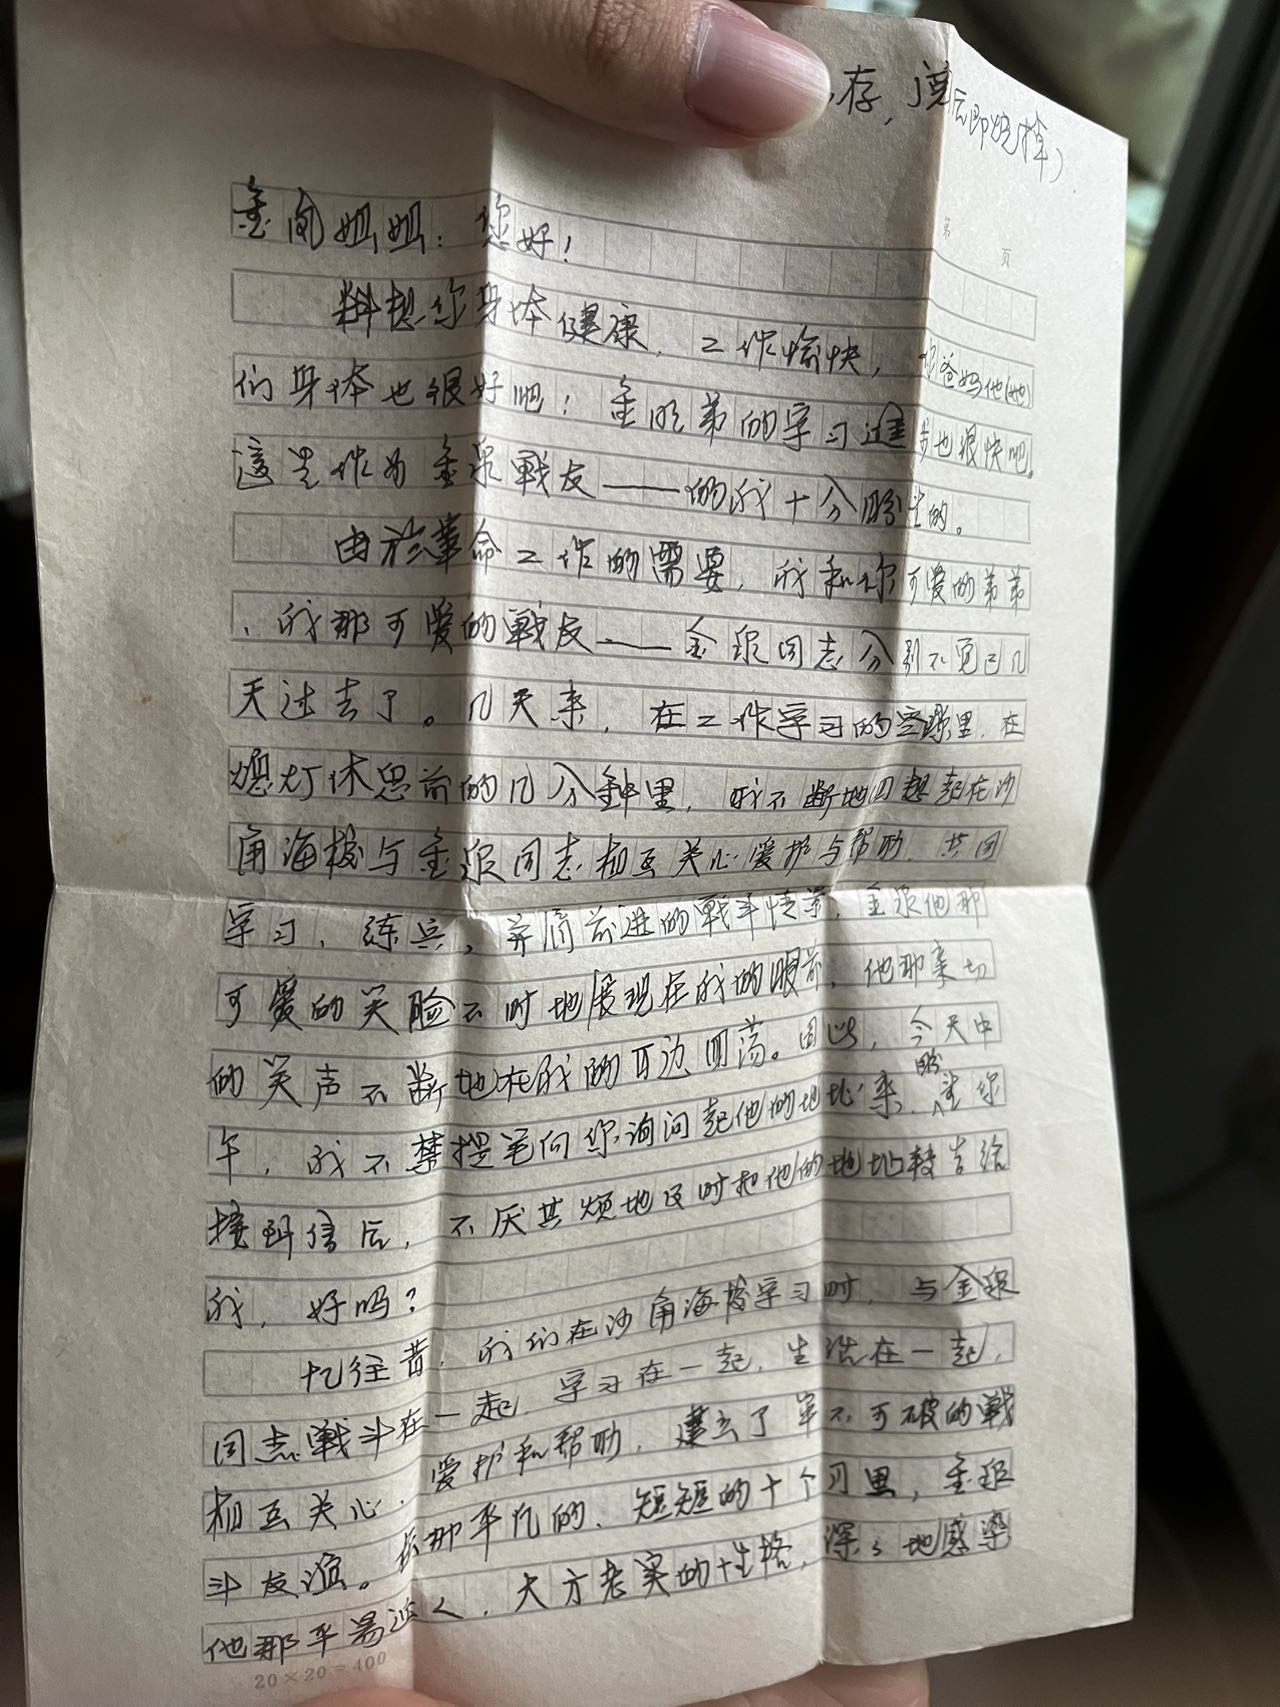 存，阅后即烧掉）
第 页
金凤姐姐：您好！
料想你身体健康，工作愉快，你爸妈他(她)
们身体也很好吧！金明弟的学习进步也很快吧。
这是作为金泉战友——的我十分盼望的。
由於革命工作的需要，我和你可爱的弟弟
、我那可爱的战友——金泉同志分别不觉已几
天过去了。几天来，在工作学习的空隙里，在
熄灯休息前的几分钟里，我不断地回想起在沙
角海校与金泉同志相互关心爱护与帮助，共同
学习、练兵，并肩前进的战斗情景，金泉他那
可爱的笑脸不时地展现在我的眼前，他那亲切
的笑声不断地在我的耳边回荡。因此，今天中
午，我不禁提笔向你询问起他的地址来，盼望你
接到信后，不厌其烦地及时把他的地址转告给
我，好吗？
忆往昔，我们在沙角海校学习时，与金泉
同志战斗在一起，学习在一起，生活在一起，
相互关心、爱护和帮助，建立了牢不可破的战
斗友谊。在那平凡的、短短的十个月里，金泉
他那平易近人，大方老实的性格，深深地感染
20×20=400